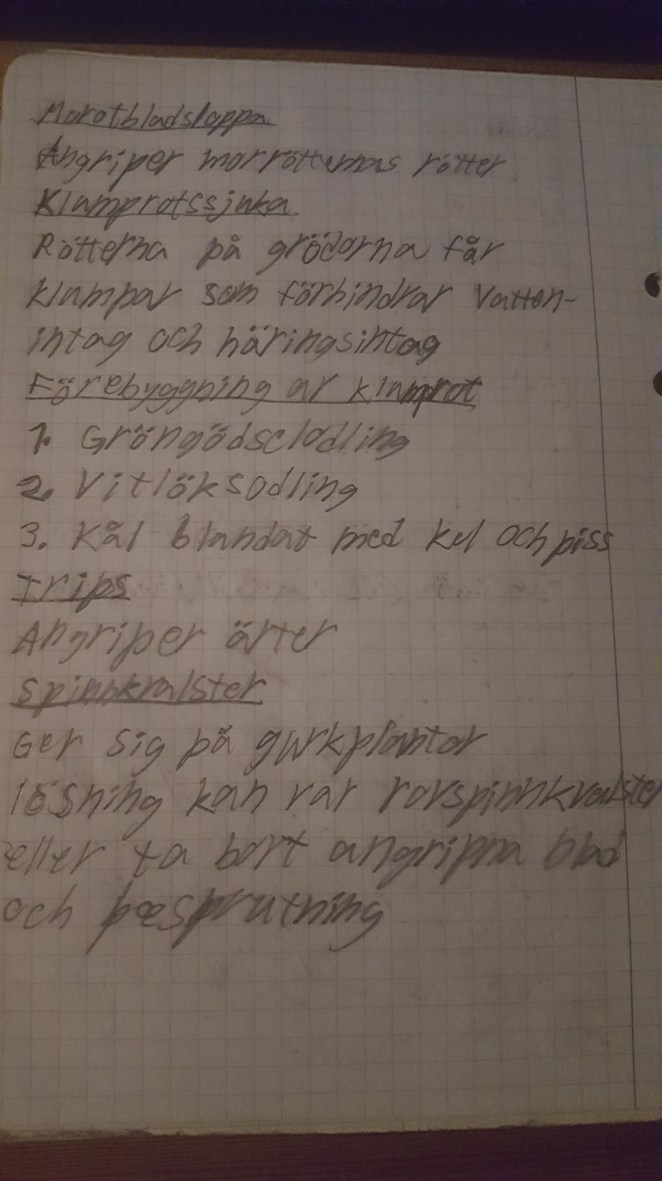 Morotbladsloppa
Angriper morrötternas rötter
Klumprotssjuka
Rötterna på grödorna får
klumpar som förhindrar vatten-
intag och näringsintag
Förebyggning av klumprot
1. Gröngödselodling
2. Vitlöksodling
3. Kål blandat med kol och piss
Trips
Angriper ärter
Spinnkvalster
Ger sig på gurkplantor
lösning kan var rovspinnkvalster
eller ta bort angripna blad
och besprutning